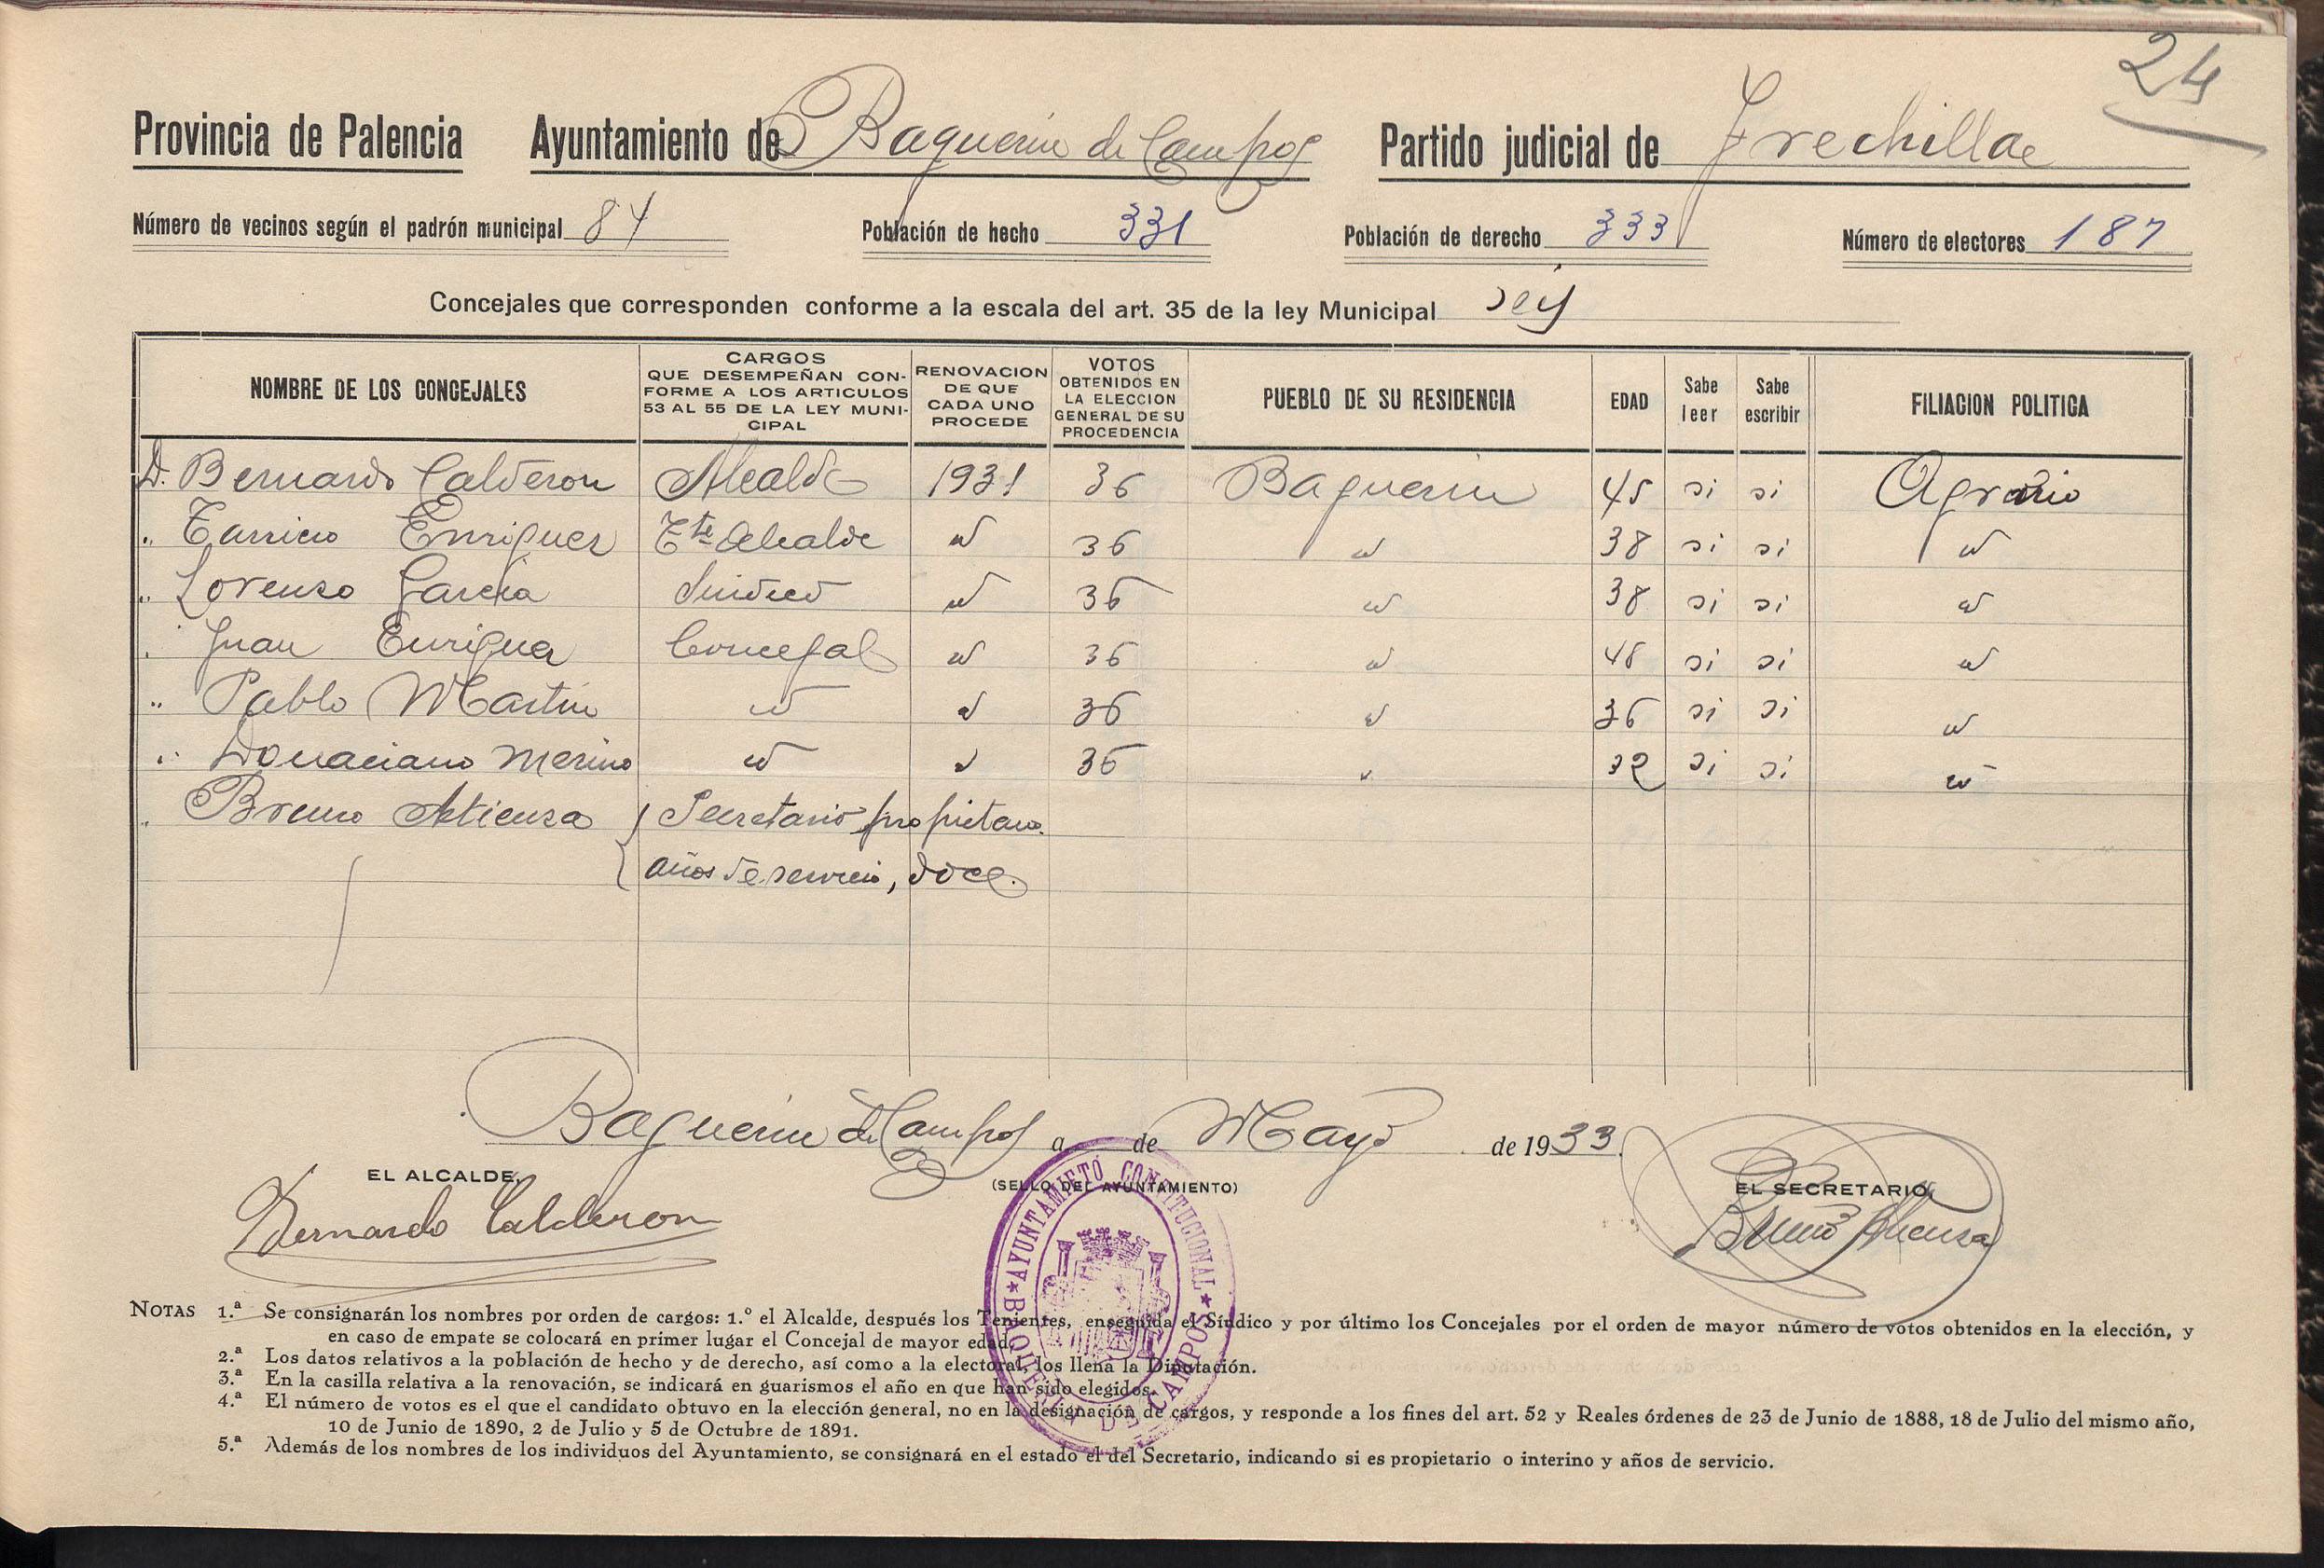 24
Provincia de Palencia Ayuntamiento de Baquerin de Campos Partido judicial de Frechilla
Número de vecinos según el padrón municipal 84 Población de hecho 331 Población de derecho 333 Número de electores 187
Concejales que corresponden conforme a la escala del art. 35 de la ley Municipal seis
NOMBRE DE LOS CONCEJALES
CARGOS
QUE DESEMPEÑAN CON-
FORME A LOS ARTICULOS
53 AL 55 DE LA LEY MUNI-
CIPAL
RENOVACION
DE QUE
CADA UNO
PROCEDE
VOTOS
OBTENIDOS EN
LA ELECCION
GENERAL DE SU
PROCEDENCIA
PUEBLO DE SU RESIDENCIA
EDAD
Sabe
leer
Sabe
escribir
FILIACION POLITICA
D. Bernardo Calderon Alcalde 1931 36 Baquerin 45 si si Agrario
" Enriquez Tte Alcalde " 36 " 38 si si "
" Lorenzo Garcia Sindico " 36 " 38 si si "
" Juan Enriquez Concejal " 36 " si si "
" Pablo Martin " " 36 " 36 si si "
" Donaciano Merino " " 36 " 32 si si "
" Bruno Atienza Secretario propietario.
años de servicio, doce.
Baquerin de Campos a de Mayo de 1933.
EL ALCALDE,
(SELLO DEL AYUNTAMIENTO)
EL SECRETARIO,
Bernardo Calderon
Bruno Atienza
AYUNTAMIETO CONSTITUCIONAL * BAQUERIN DE CAMPOS *
NOTAS 1.ª Se consignarán los nombres por orden de cargos: 1.º el Alcalde, después los Tenientes, enseguida el Síndico y por último los Concejales por el orden de mayor número de votos obtenidos en la elección, y
en caso de empate se colocará en primer lugar el Concejal de mayor edad.
2.ª Los datos relativos a la población de hecho y de derecho, así como a la electoral, los llena la Diputación.
3.ª En la casilla relativa a la renovación, se indicará en guarismos el año en que han sido elegidos.
4.ª El número de votos es el que el candidato obtuvo en la elección general, no en la designación de cargos, y responde a los fines del art. 52 y Reales órdenes de 23 de Junio de 1888, 18 de Julio del mismo año,
10 de Junio de 1890, 2 de Julio y 5 de Octubre de 1891.
5.ª Además de los nombres de los individuos del Ayuntamiento, se consignará en el estado el del Secretario, indicando si es propietario o interino y años de servicio.